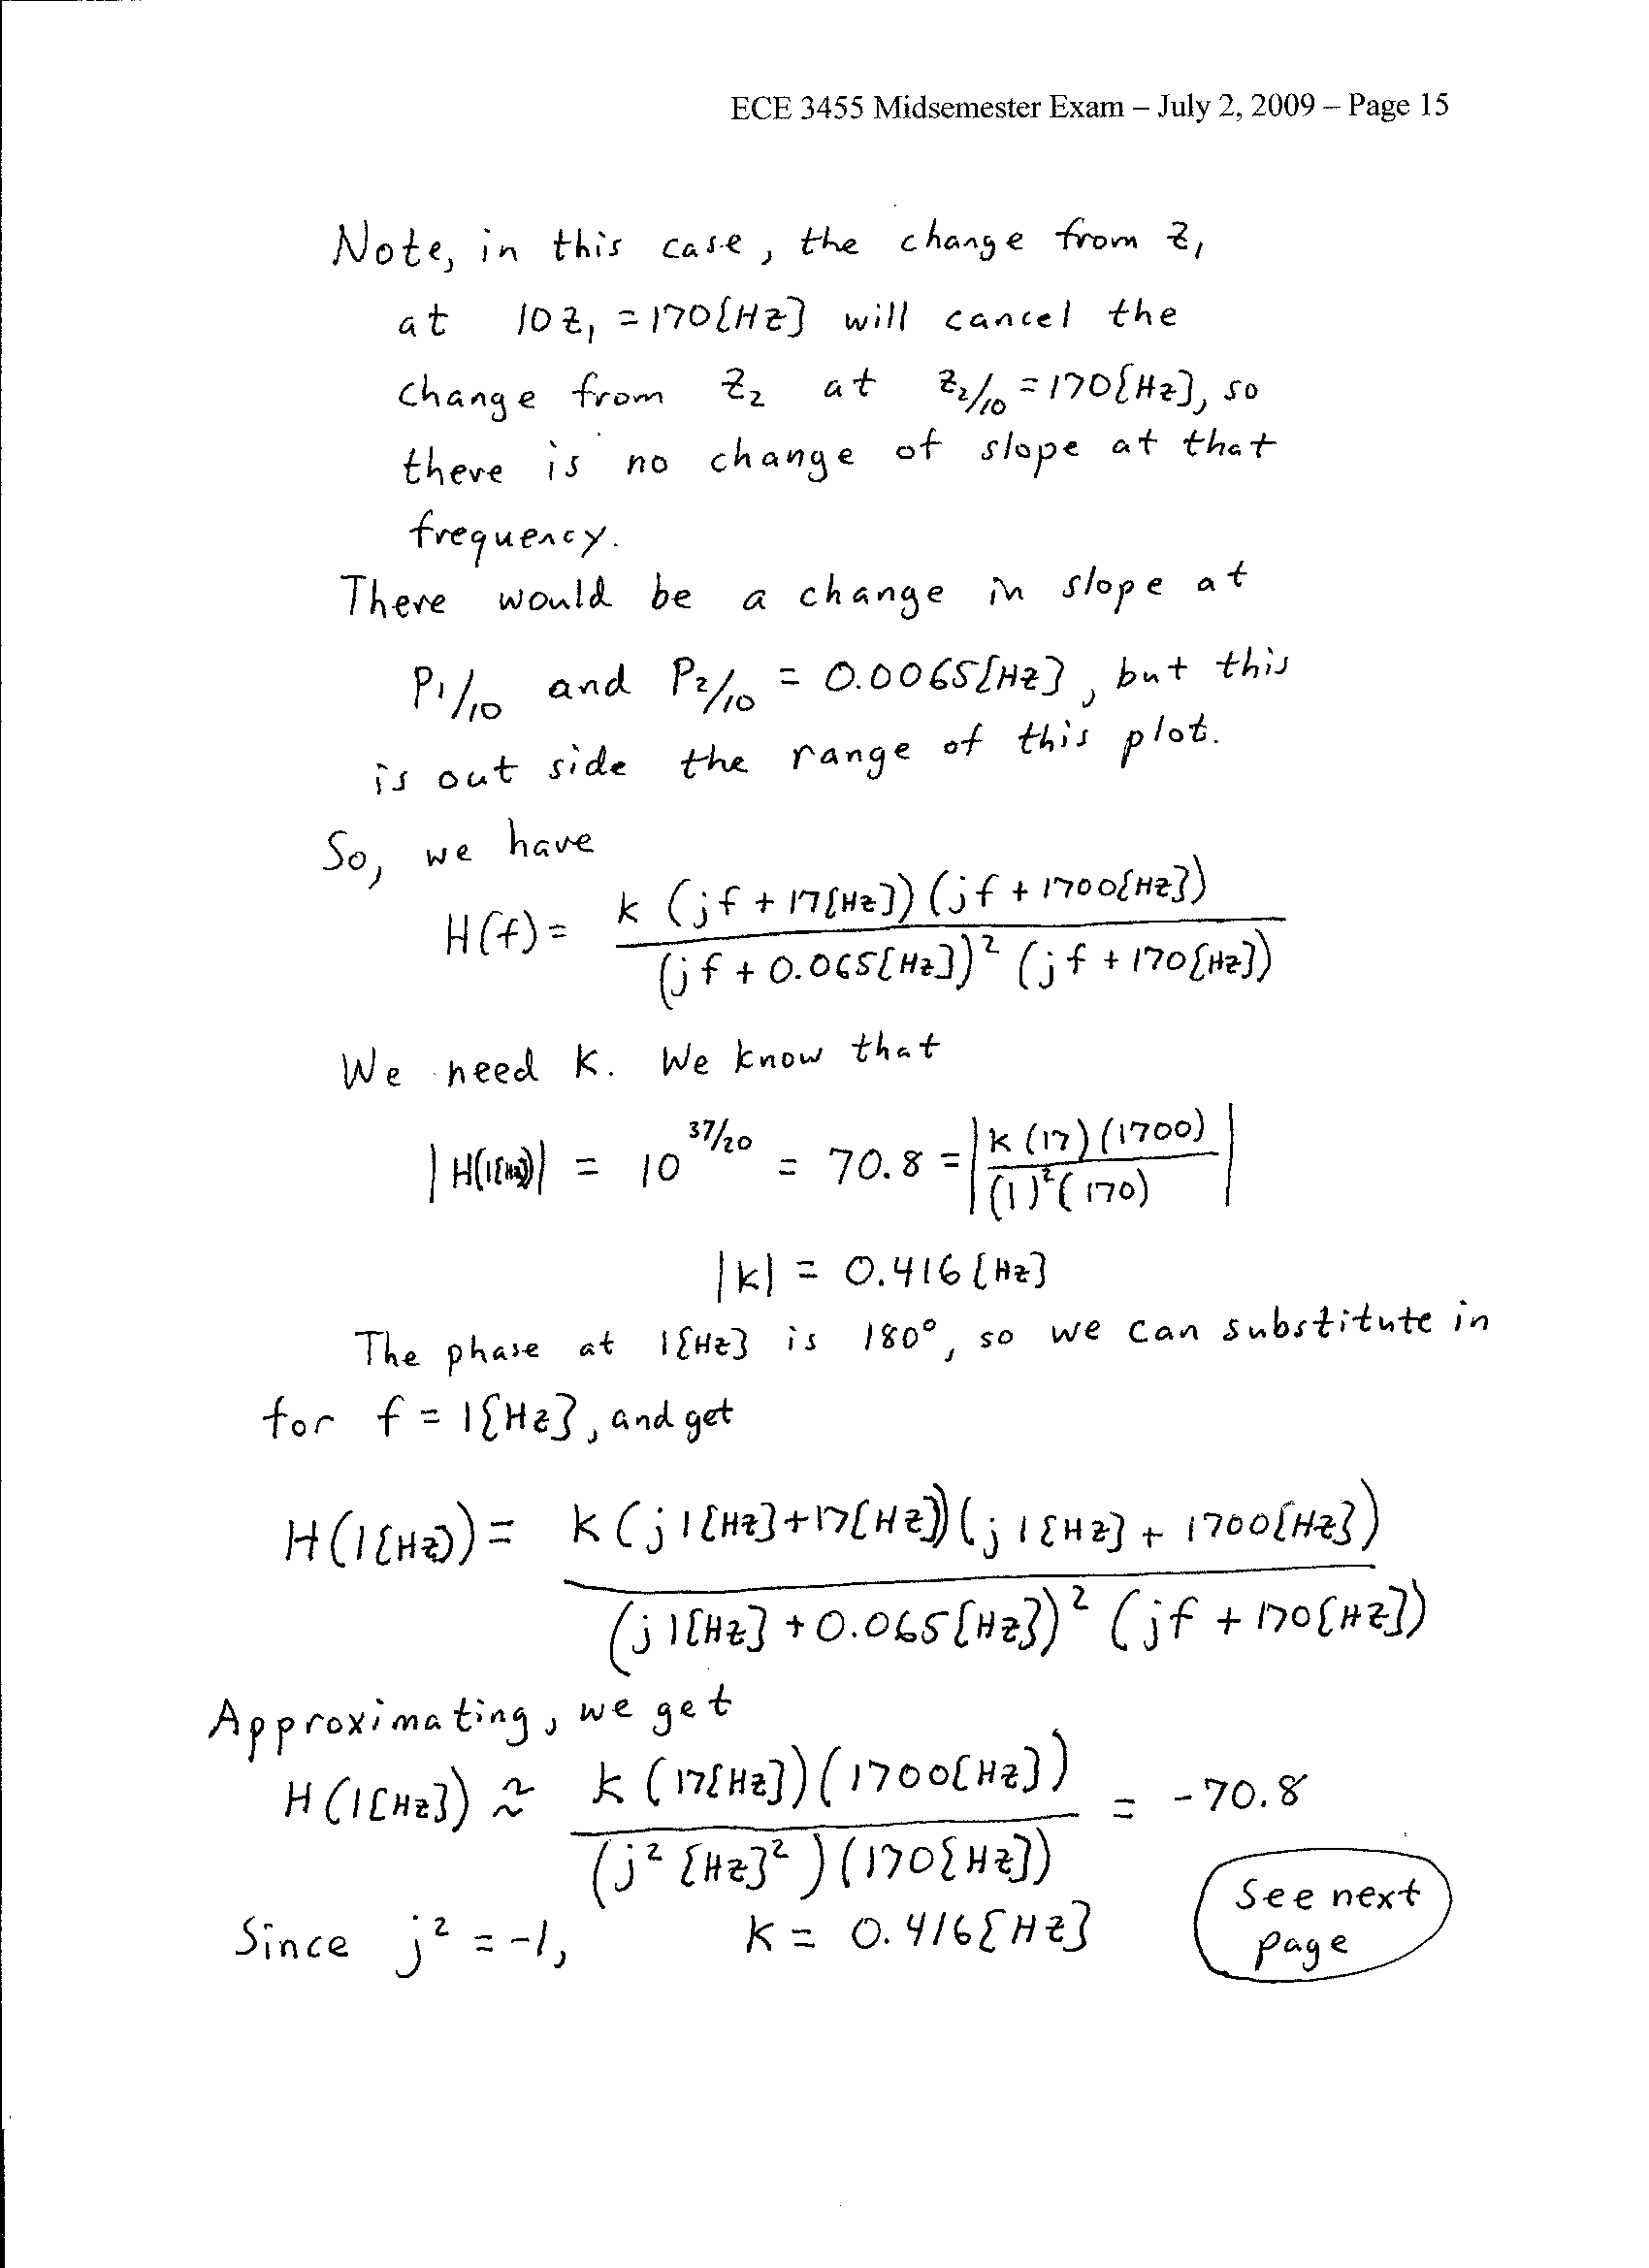 ECE 3455 Midsemester Exam – July 2, 2009 – Page 15
Note, in this case, the change from z₁
at 10z₁ = 170[Hz] will cancel the
change from z₂ at z₂/10 = 170[Hz], so
there is no change of slope at that
frequency.
There would be a change in slope at
P₁/10 and P₂/10 = 0.0065[Hz], but this
is out side the range of this plot.
So, we have
H(f) = k (jf + 17[Hz]) (jf + 1700[Hz])
(jf + 0.065[Hz])² (jf + 170[Hz])
We need K. We know that
|H(1[Hz])| = 10^37/20 = 70.8 = |k (17) (1700) / (1)² (170)|
|k| = 0.416 [Hz]
The phase at 1[Hz] is 180°, so we can substitute in
for f = 1[Hz], and get
H(1[Hz]) = k (j 1[Hz] + 17[Hz]) (j 1[Hz] + 1700[Hz])
(j 1[Hz] + 0.065[Hz])² (jf + 170[Hz])
Approximating, we get
H(1[Hz]) ≈ k (17[Hz]) (1700[Hz]) = -70.8
(j² [Hz]²) (170[Hz])
Since j² = -1, K = 0.416[Hz]
See next
page